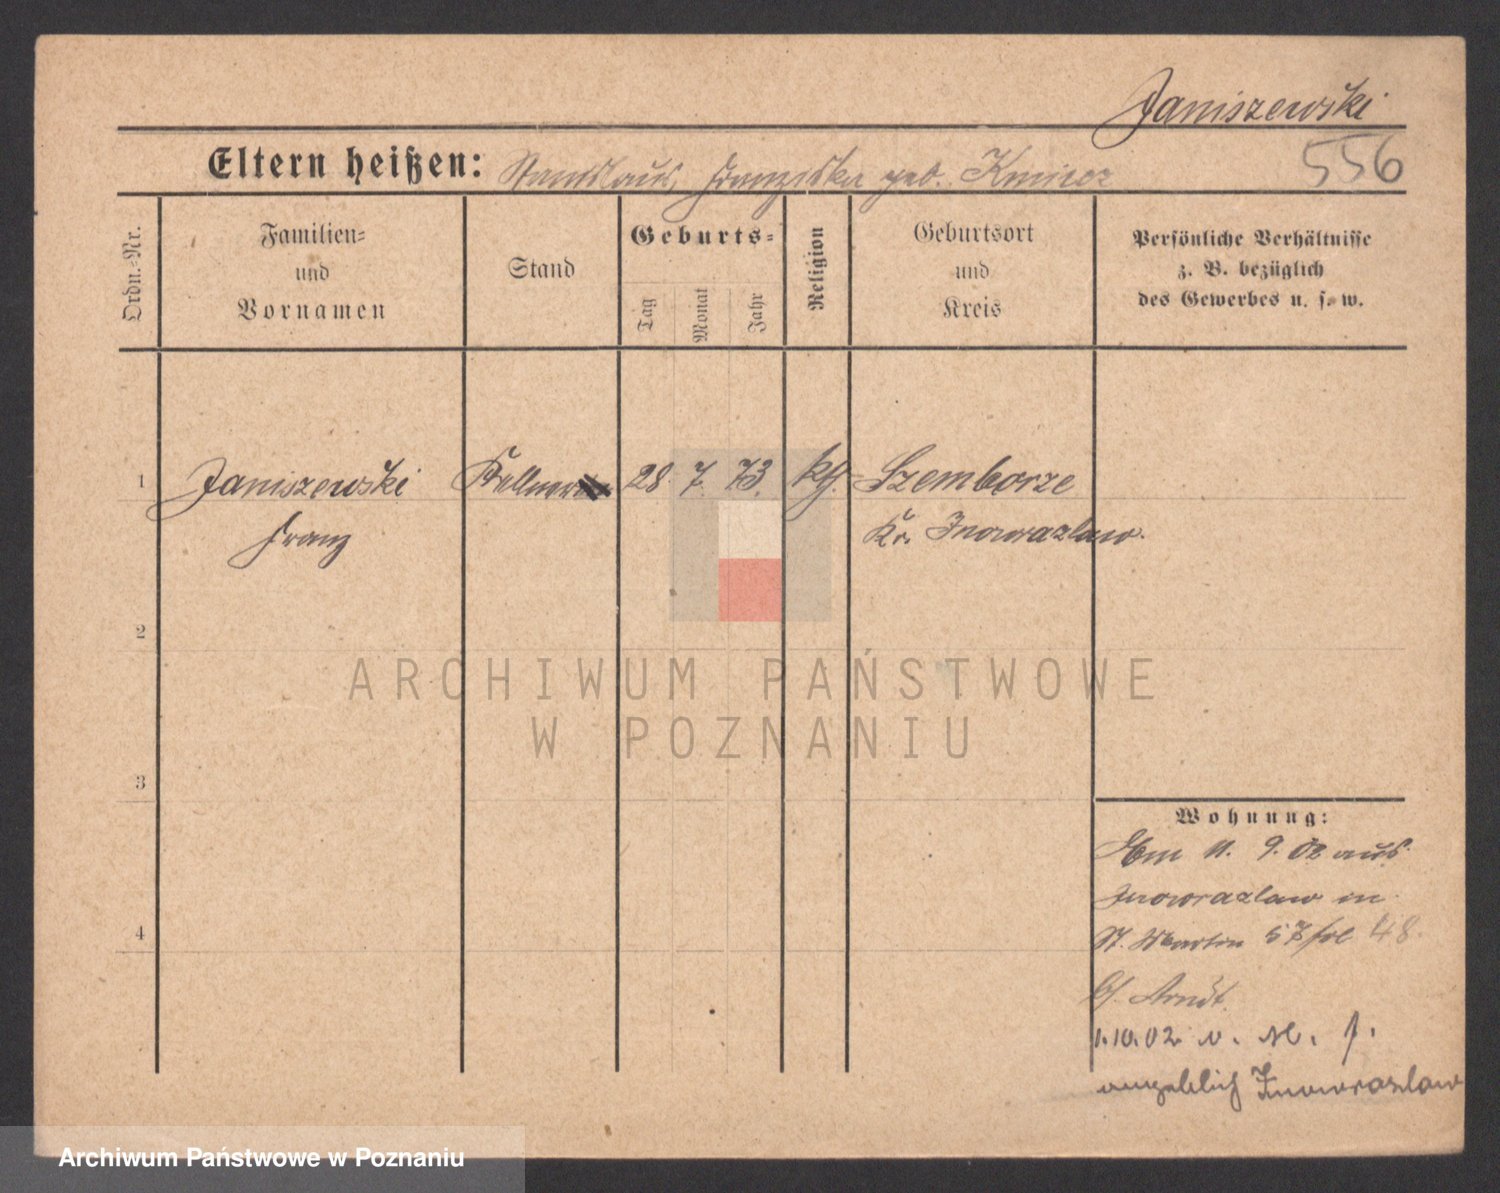 Janiszewski
Eltern heißen: Stanislaus, Franziska geb. 556
Ordn.-Nr.
Familien-
und
Vornamen
Stand
Geburts-
Tag
Monat
Jahr
Religion
Geburtsort
und
Kreis
Persönliche Verhältnisse
z. B. bezüglich
des Gewerbes u. s. w.
1 Janiszewski Kellner 28. 7. 73. kg. Szemborze
Franz Kr. Inowrazlaw.
2
3
4
Wohnung:
11. 9. 02 aus
Inowrazlaw in
St. Martin 57 48.
b/ Arndt.
1.10.02 v.
angeblich Inowrazlaw
ARCHIWUM PAŃSTWOWE
W POZNANIU
Archiwum Państwowe w Poznaniu